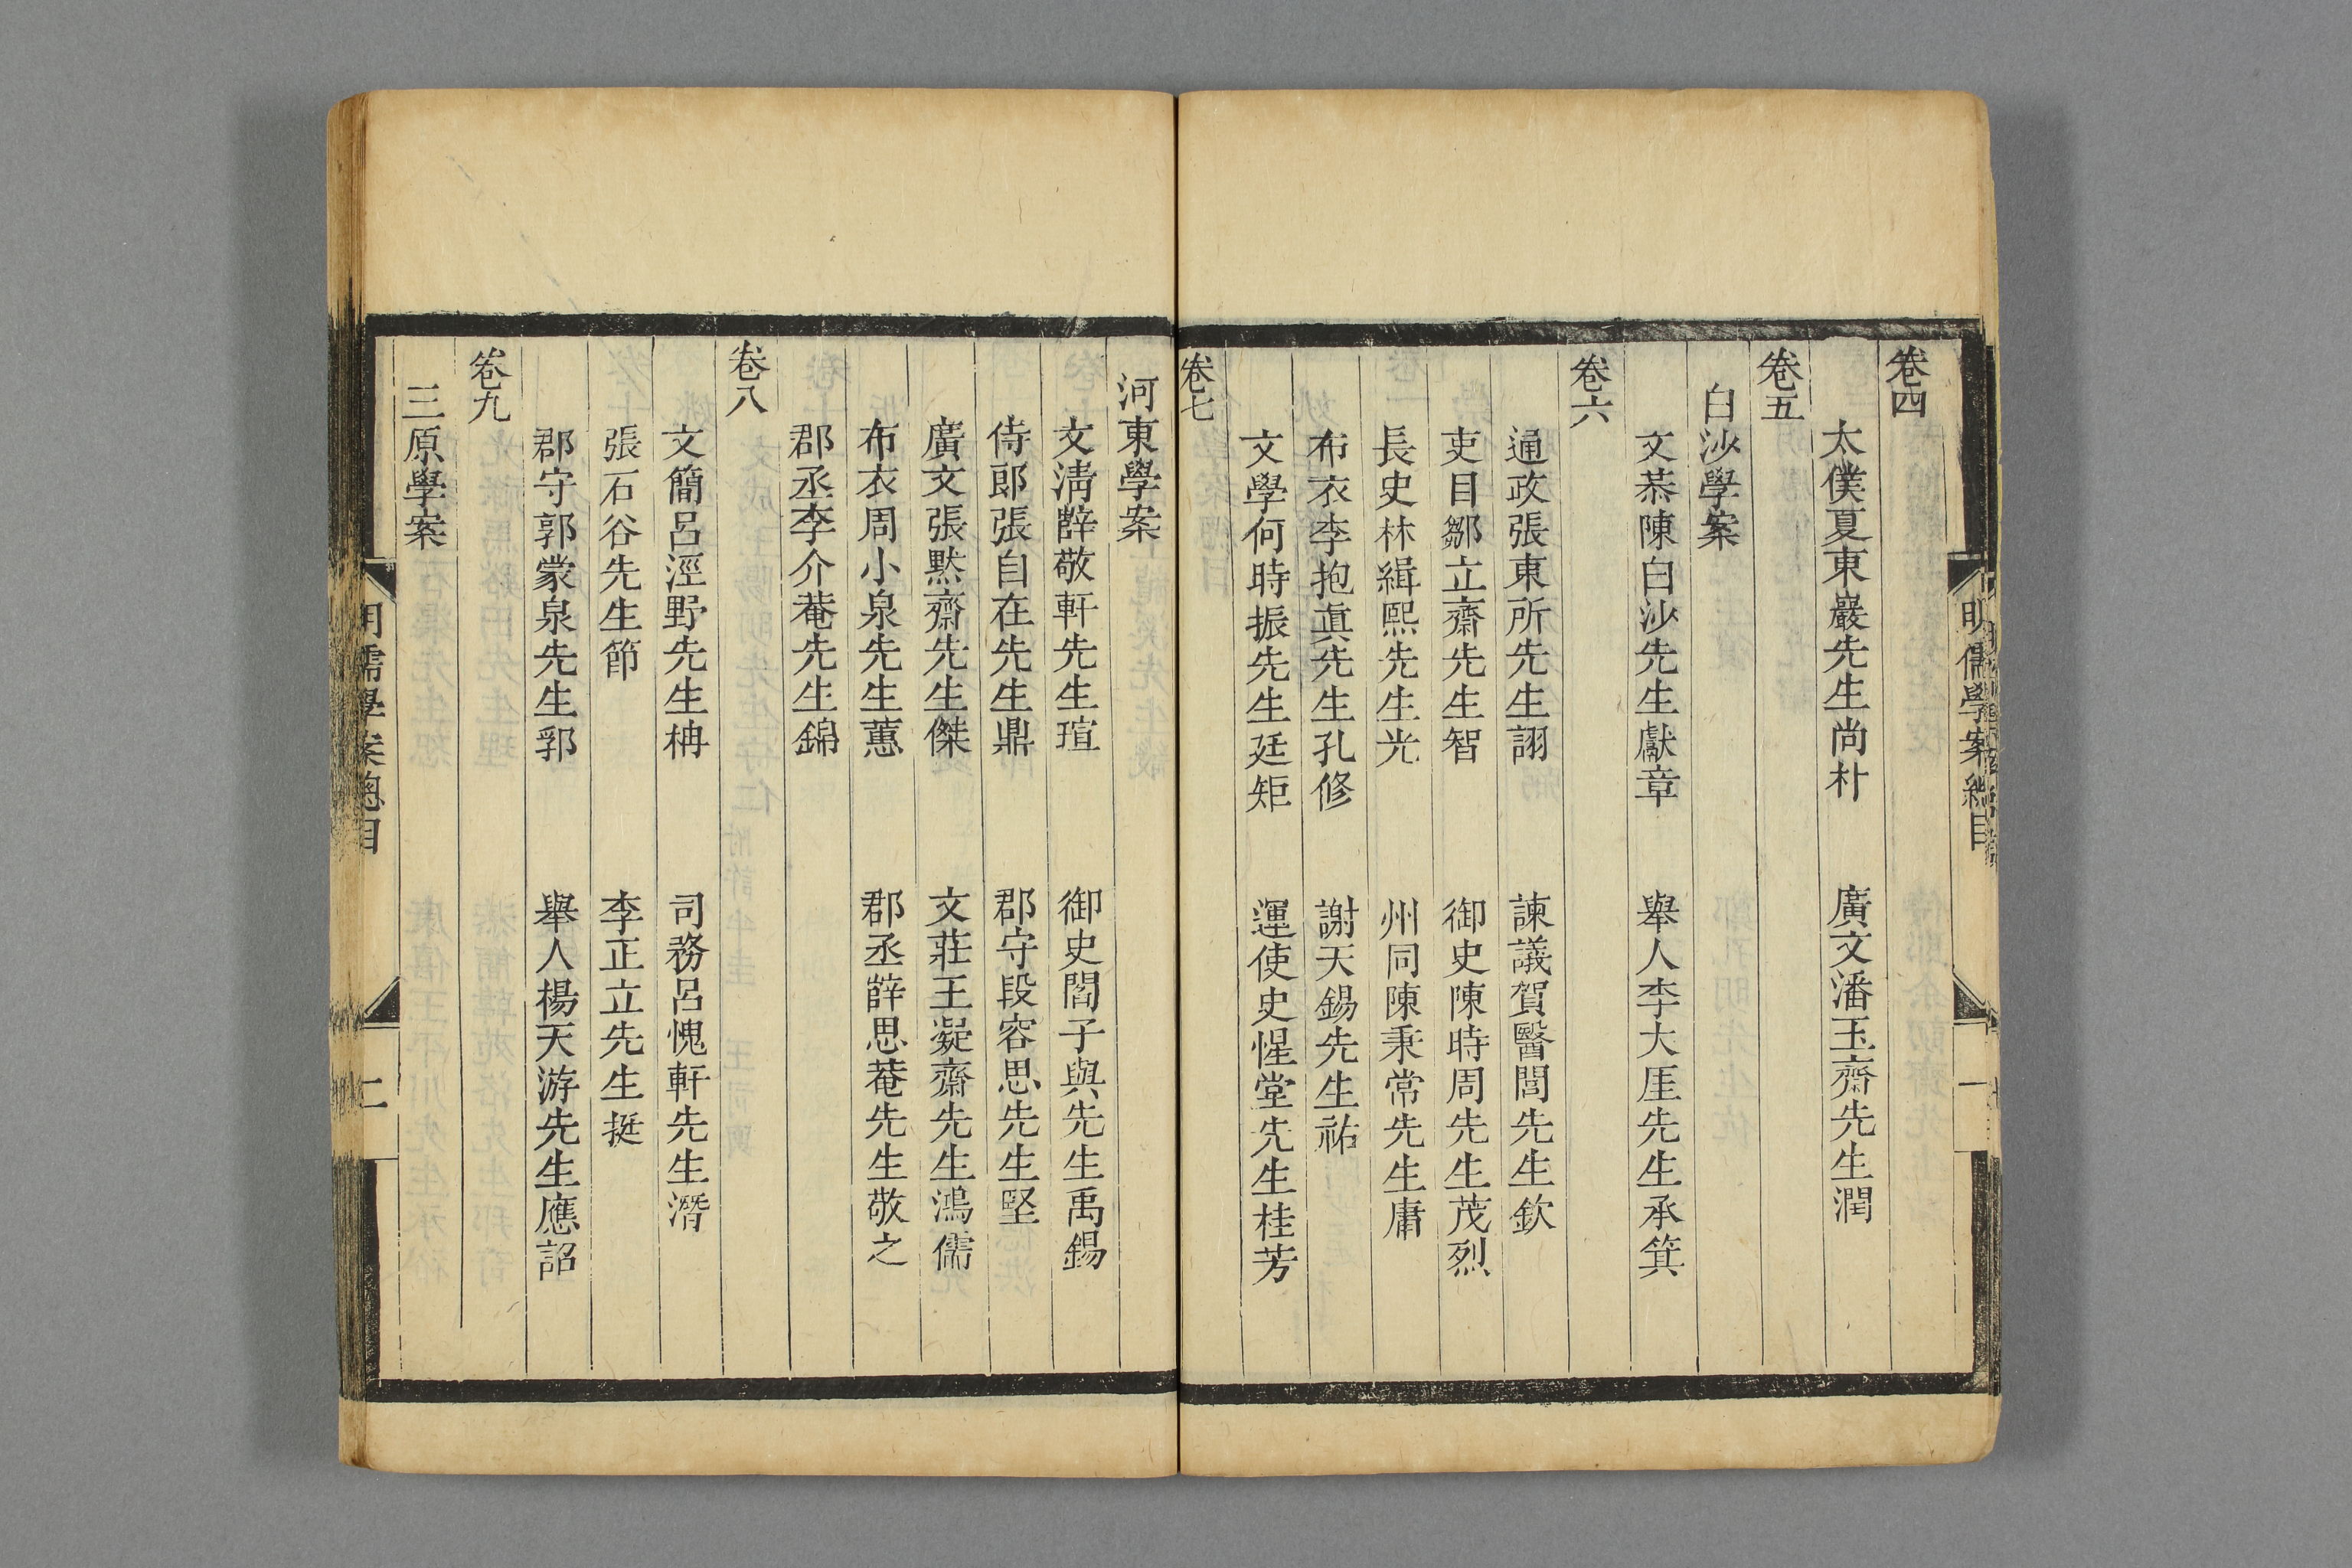 卷四
太僕夏東巖先生尚朴　廣文潘玉齋先生潤
卷五
白沙學案
文恭陳白沙先生獻章　舉人李大厓先生承箕
卷六
通政張東所先生詡　諫議賀醫閭先生欽
吏目鄒立齋先生智　御史陳時周先生茂烈
長史林緝熙先生光　州同陳秉常先生庸
布衣李抱眞先生孔修　謝天錫先生祐
文學何時振先生廷矩　運使史惺堂先生桂芳
卷七
河東學案
文淸薛敬軒先生瑄　御史閻子與先生禹錫
侍郎張自在先生鼎　郡守段容思先生堅
廣文張默齋先生傑　文莊王凝齋先生鴻儒
布衣周小泉先生蕙　郡丞薛思菴先生敬之
郡丞李介菴先生錦
卷八
文簡呂涇野先生柟　司務呂愧軒先生潛
張石谷先生節　李正立先生挺
郡守郭蒙泉先生郛　舉人楊天游先生應詔
卷九
三原學案
明儒學案總目
二